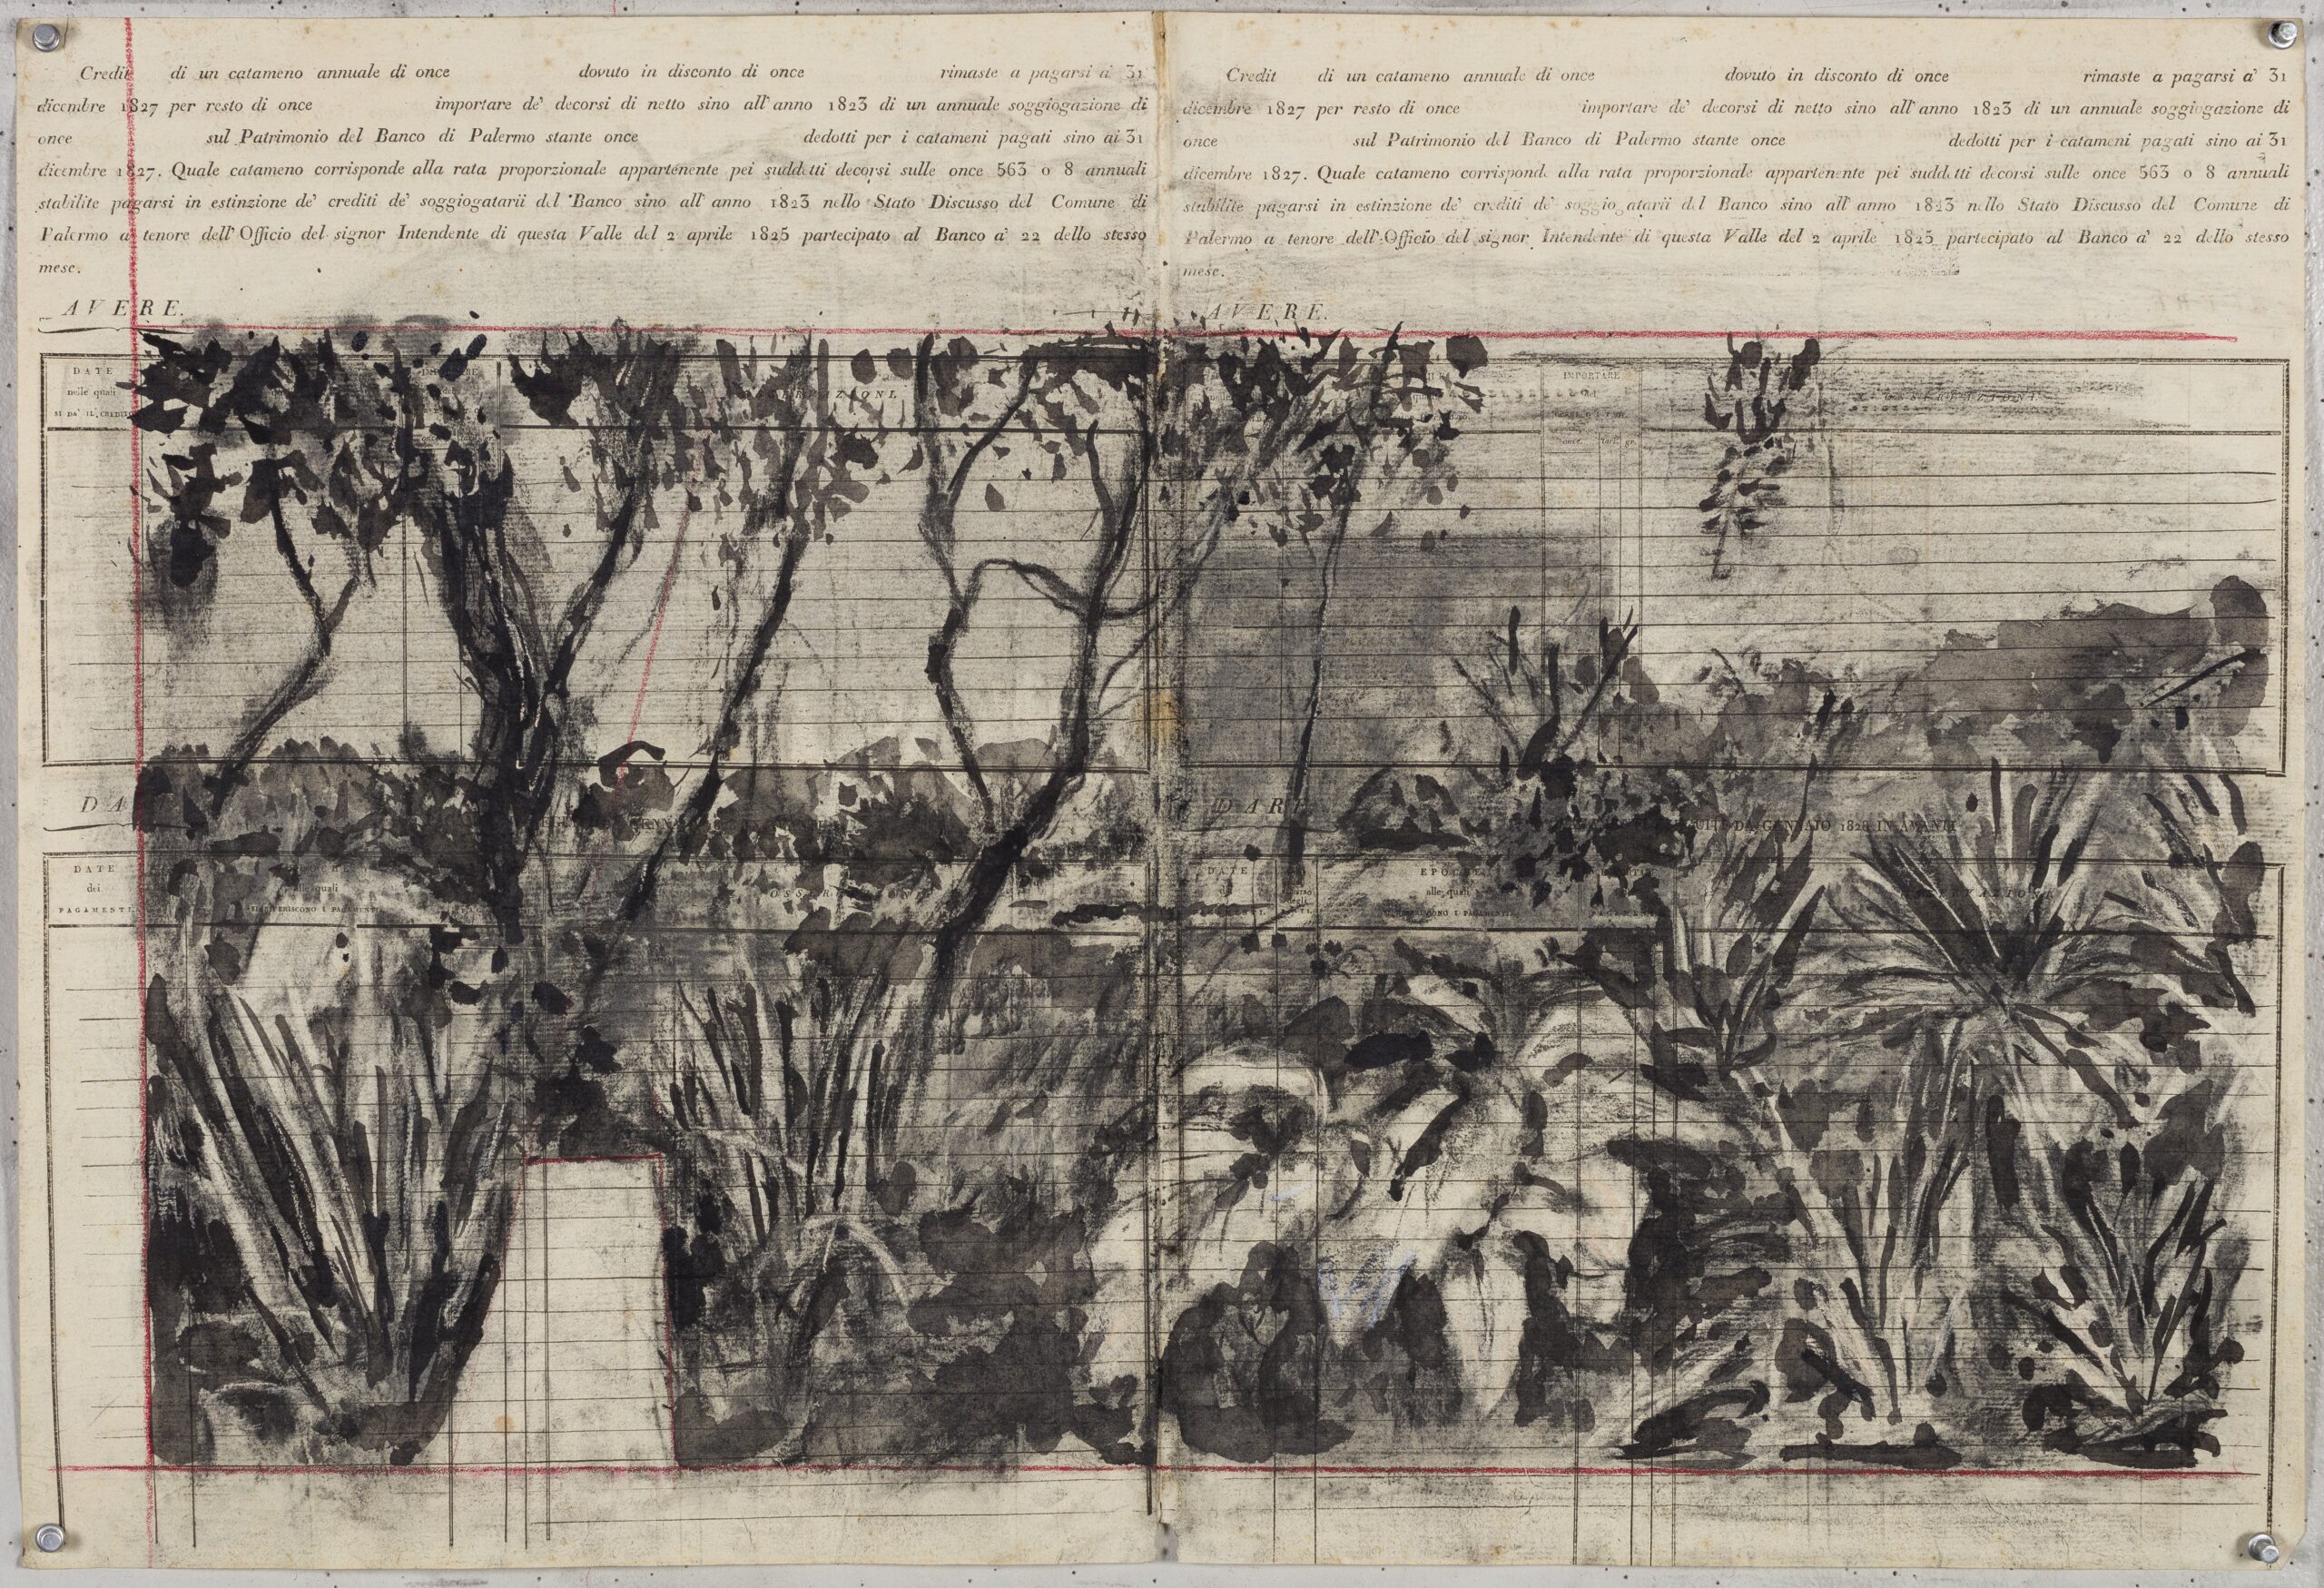 Credit di un catameno annuale di once dovuto in disconto di once rimaste a pagarsi a' 31
dicembre 1827 per resto di once importare de' decorsi di netto sino all'anno 1823 di un annuale soggiogazione di
once sul Patrimonio del Banco di Palermo stante once dedotti per i catameni pagati sino ai 31
dicembre 1827. Quale catameno corrisponde alla rata proporzionale appartenente pei suddetti decorsi sulle once 563 0 8 annuali
stabilite pagarsi in estinzione de' crediti de' soggiogatarii del Banco sino all'anno 1823 nello Stato Discusso del Comune di
Palermo a tenore dell'Officio del signor Intendente di questa Valle del 2 aprile 1825 partecipato al Banco a' 22 dello stesso
mese.
AVERE.
DATE
nelle quali
SI DA' IL CREDITO
DA
DATE
dei
PAGAMENTI
alle quali
SI RIFERISCONO I PAGAMENTI
Credit di un catameno annuale di once dovuto in disconto di once rimaste a pagarsi a' 31
dicembre 1827 per resto di once importare de' decorsi di netto sino all'anno 1823 di un annuale soggiogazione di
once sul Patrimonio del Banco di Palermo stante once dedotti per i catameni pagati sino ai 31
dicembre 1827. Quale catameno corrisponde alla rata proporzionale appartenente pei suddetti decorsi sulle once 563 0 8 annuali
stabilite pagarsi in estinzione de' crediti de' soggiogatarii del Banco sino all'anno 1823 nello Stato Discusso del Comune di
Palermo a tenore dell'Officio del signor Intendente di questa Valle del 2 aprile 1825 partecipato al Banco a' 22 dello stesso
mese.
AVERE.
IMPORTARE
OSSERVAZIONI
DARE
DA GENNAJO 1828 IN AVANTI
DATE
EPOCHE
alle quali
SI RIFERISCONO I PAGAMENTI